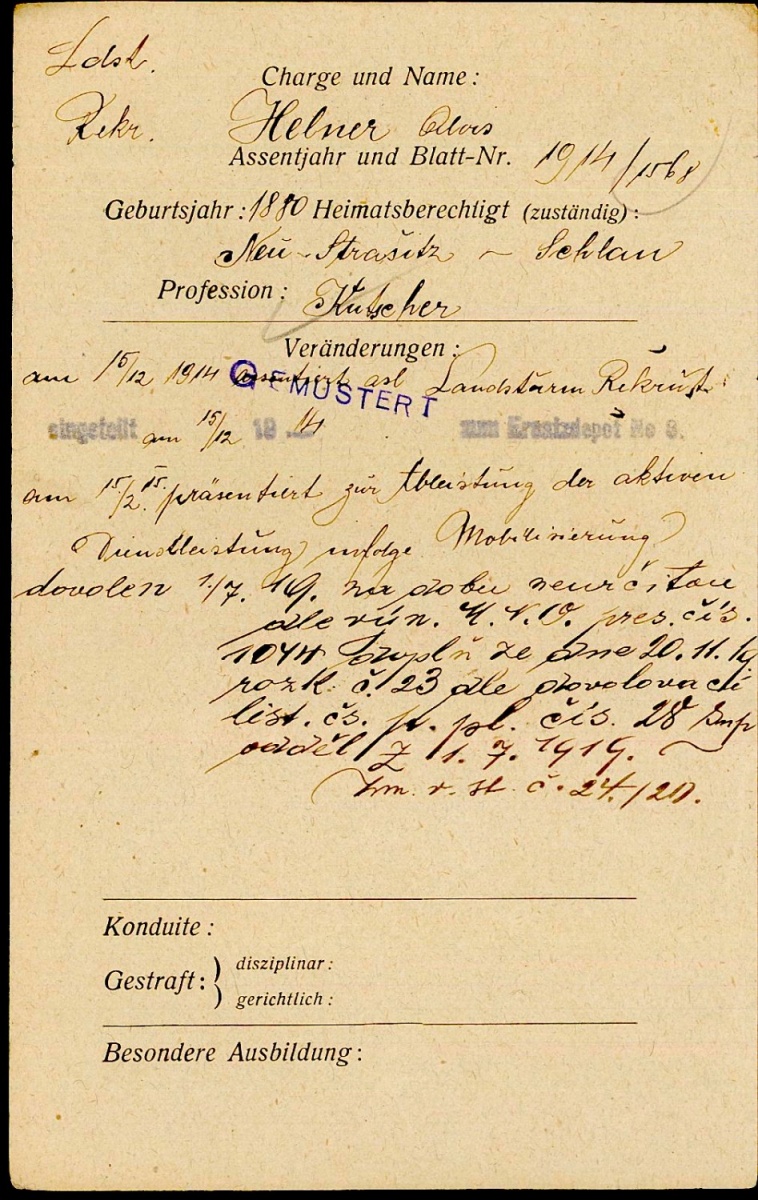 Ldst.
Charge und Name:
Rekr. Helner Alois
Assentjahr und Blatt-Nr. 1914/1568
Geburtsjahr: 1880 Heimatsberechtigt (zuständig):
Neu-Strašitz - Schlan
Profession: Kutscher
Veränderungen:
am 15/12 1914 assentiert asl Landsturm Rekrut
GEMUSTERT
eingeteilt am 15/12 19 14 zum Ersatzdepot No 8.
am 15/2. 15. präsentiert zur Ableistung der aktiven
Dienstleistung infolge Mobilisierung
dovolen 1./7. 19. na dobu neurčitou
dle výn. M.N.O. pres. čís.
1044 doplň ze dne 20.11.19
rozk. č. 23 dle dovolovací
list. čs. p. pl. čís. 28
odděl Z 1.7.1919.
Zm. v. st. č. 24./20.
Konduite:
Gestraft: disziplinar:
gerichtlich:
Besondere Ausbildung: